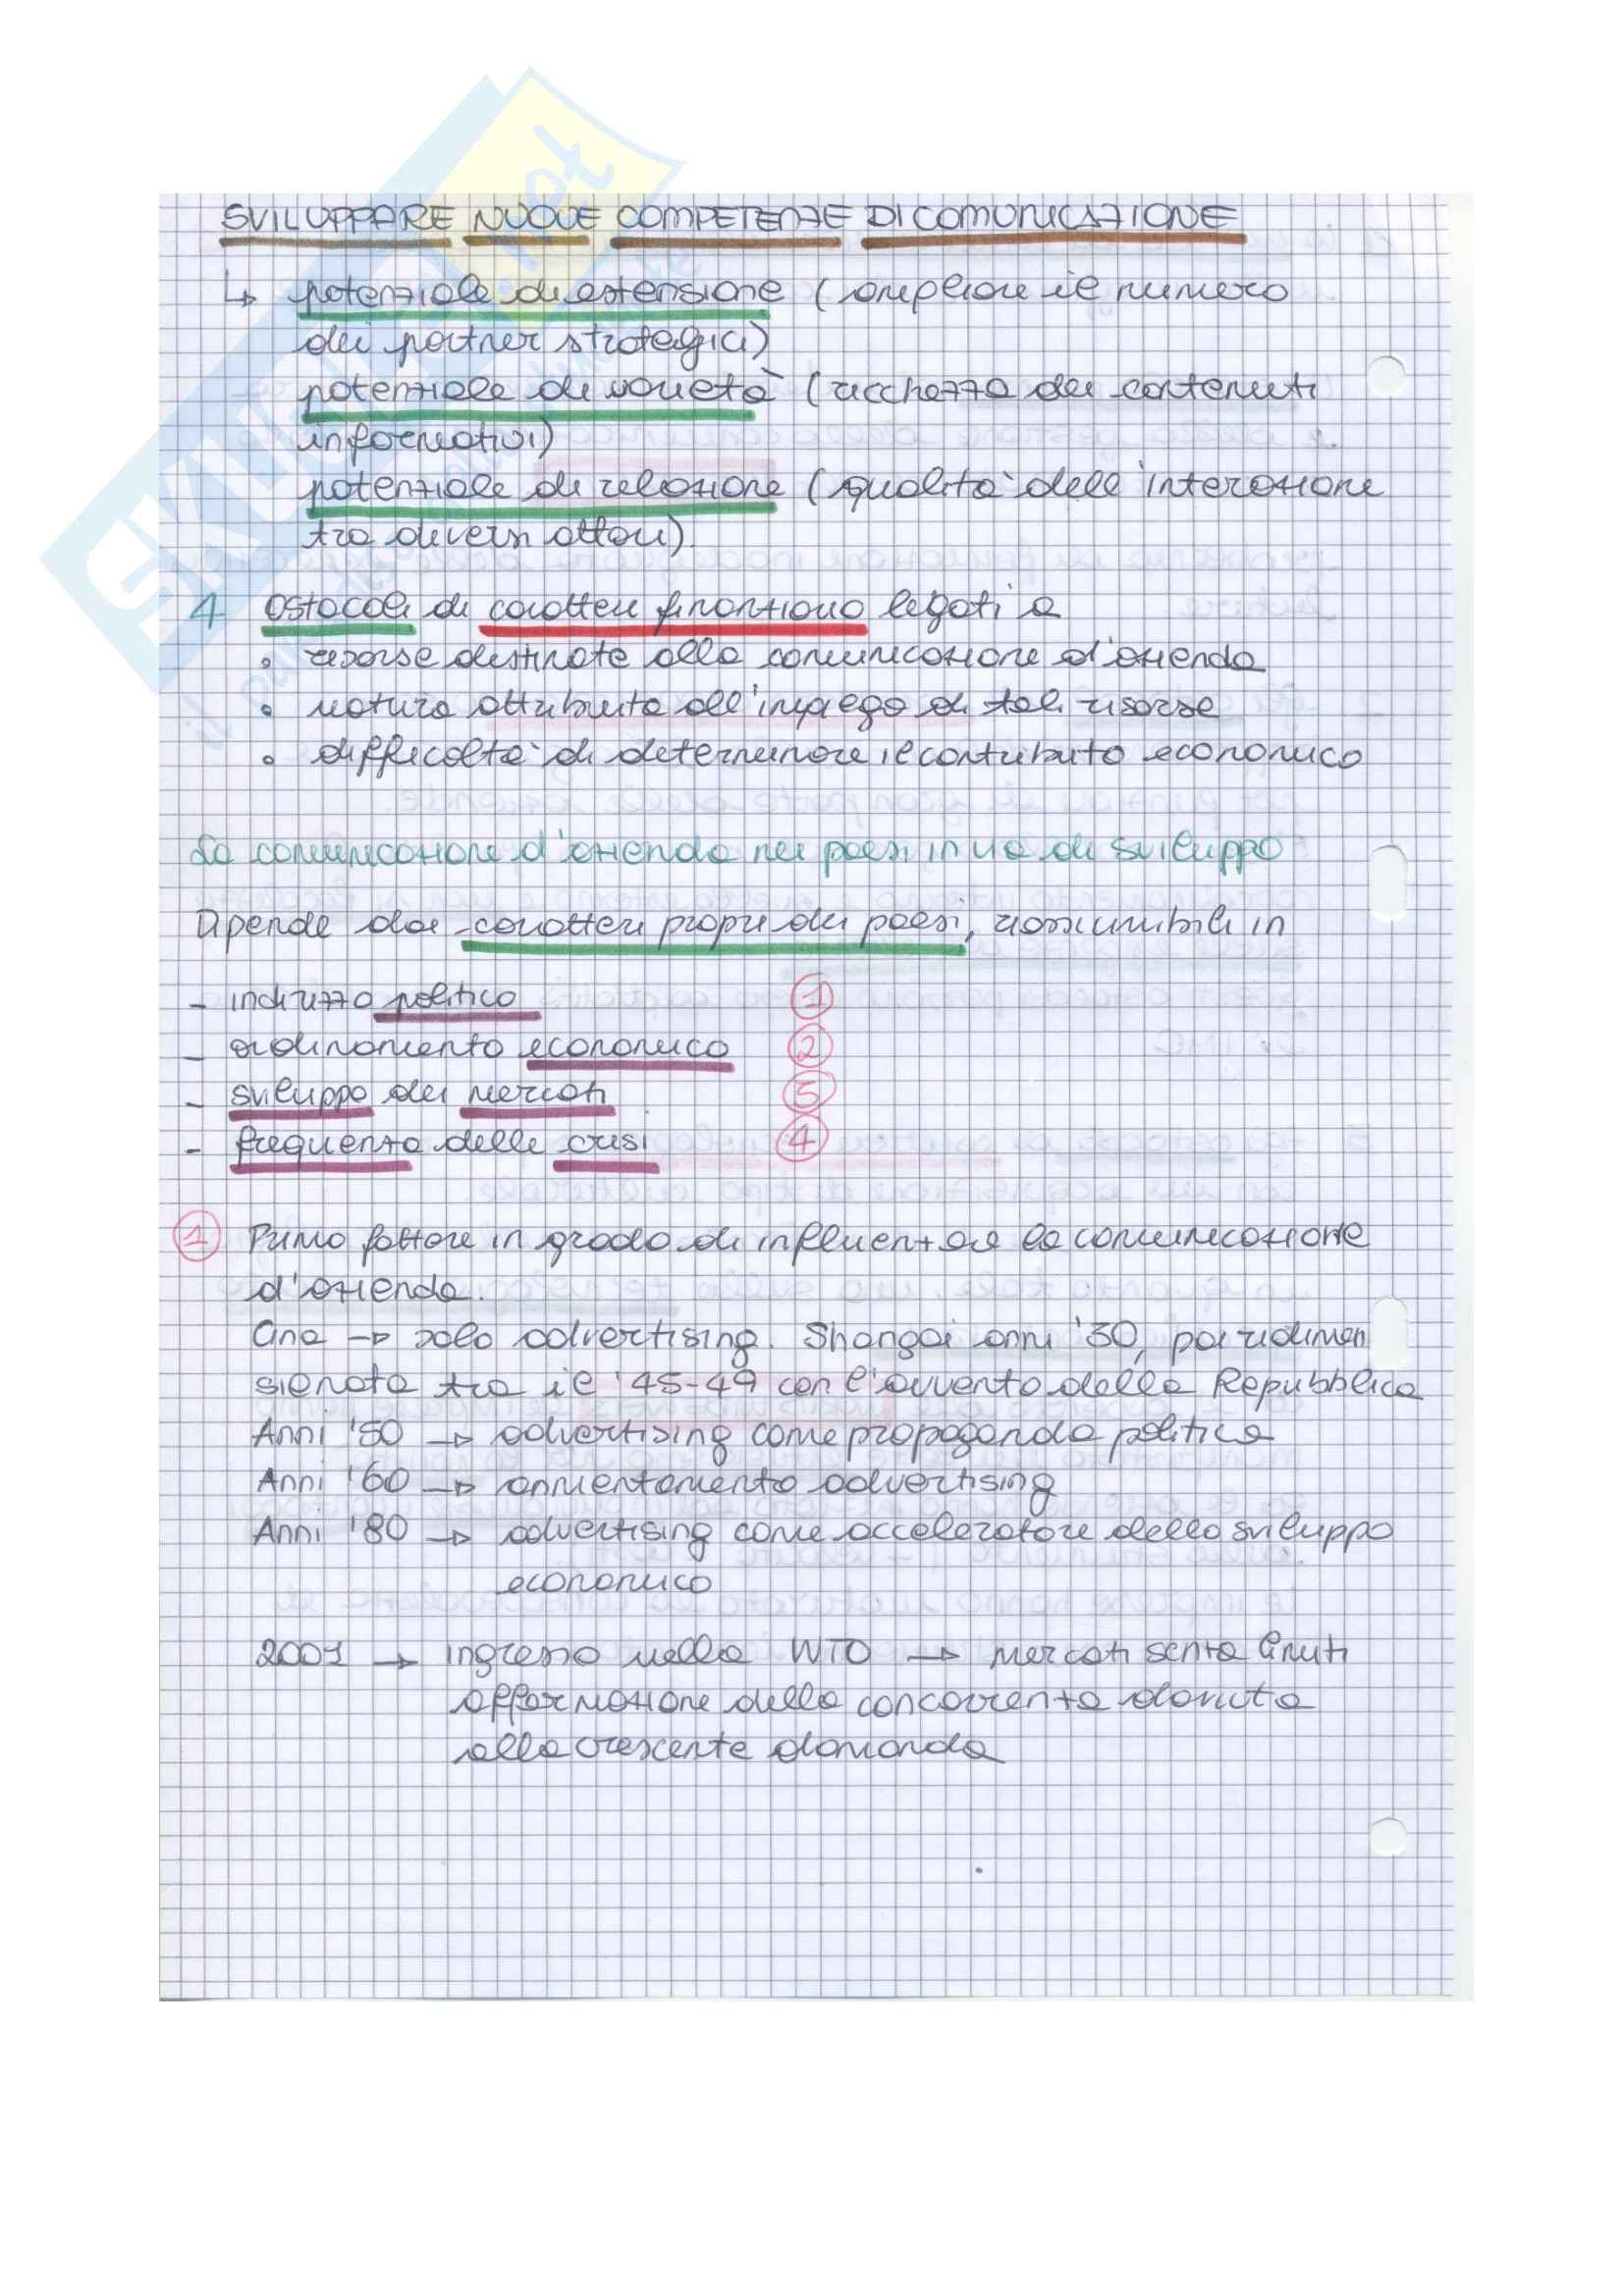 SVILUPPARE NUOVE COMPETENZE DI COMUNICAZIONE
↳ potenziale di estensione (ampliare il numero
dei partner strategici)
potenziale di varietà (ricchezza dei contenuti
informativi)
potenziale di relazione (qualità dell'interazione
tra diversi attori).
4 Ostacoli di carattere finanziario legati a
• risorse destinate alla comunicazione d'azienda
• natura attribuita all'impiego di tali risorse
• difficoltà di determinare il contributo economico
La comunicazione d'azienda nei paesi in via di sviluppo
Dipende dai caratteri propri dei paesi, riassumibili in
- indirizzo politico ①
- ordinamento economico ②
- sviluppo dei mercati ③
- frequenza delle crisi ④
① Primo fattore in grado di influenzare la comunicazione
d'azienda.
Cina → solo advertising. Shangai anni '30, poi ridimen
sionata tra il '45-49 con l'avvento della Repubblica
Anni '50 → advertising come propaganda politica
Anni '60 → annientamento advertising
Anni '80 → advertising come acceleratore dello sviluppo
economico
2001 → ingresso nella WTO → mercati senza limiti
affermazione della concorrenza dovuta
alla crescente domanda
SKUOLA.net